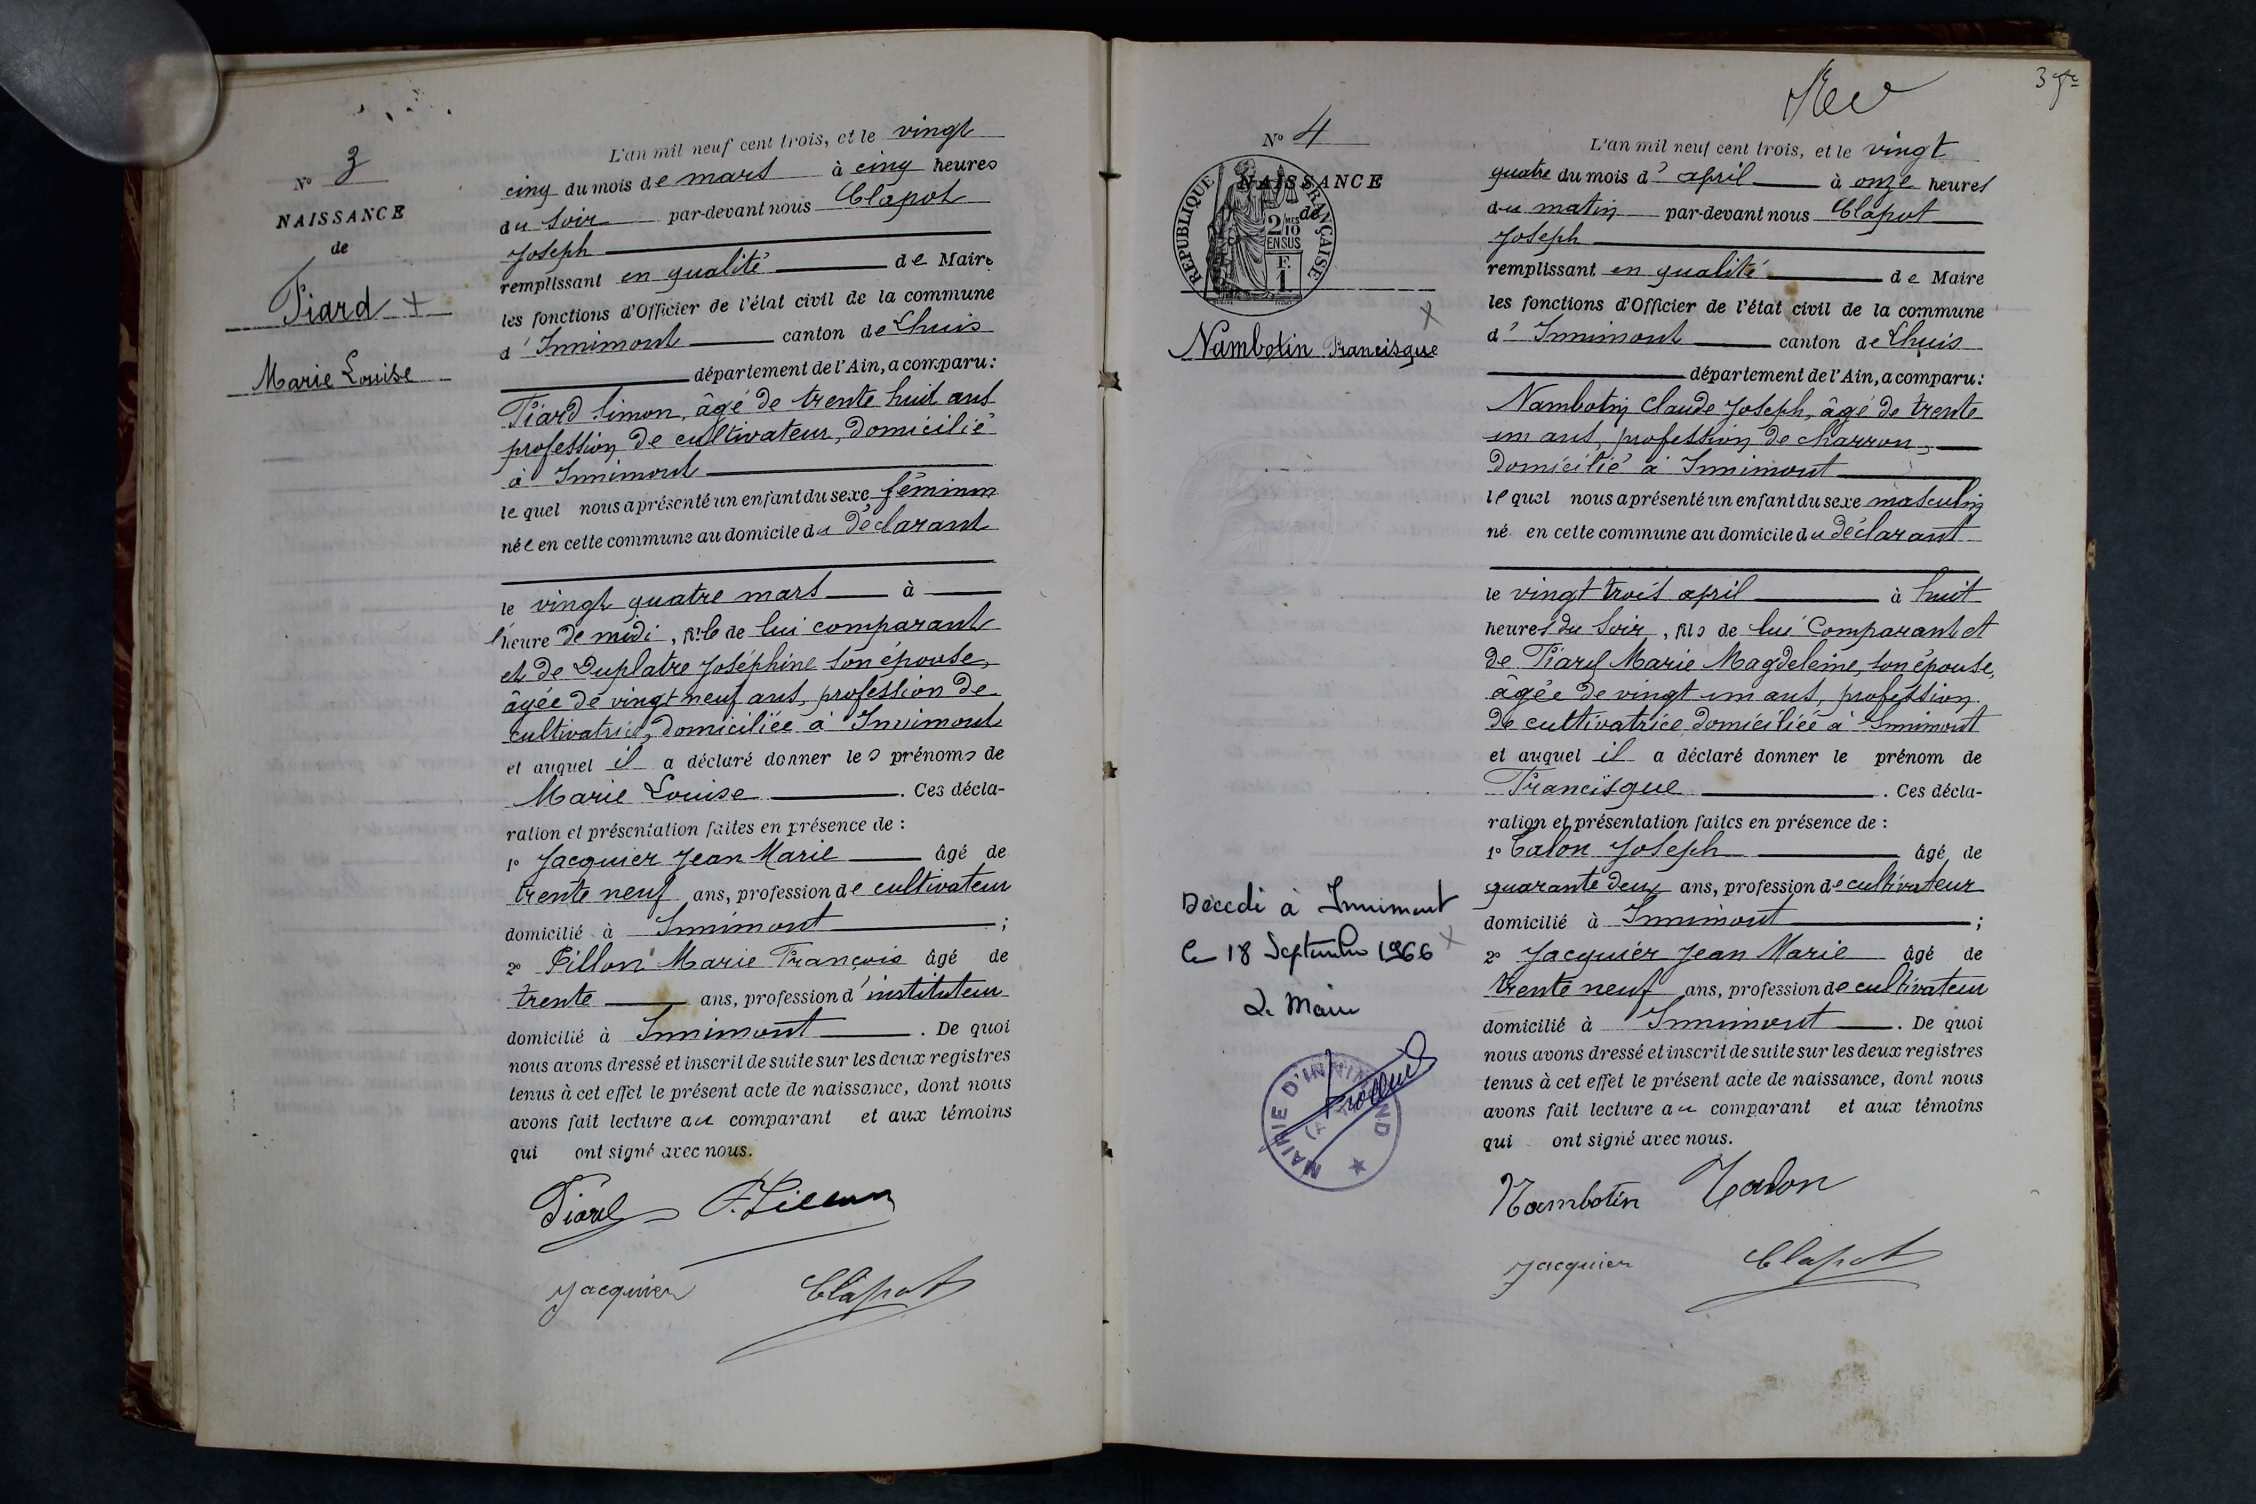 N° 3
NAISSANCE
de
Piard
Marie Louise
L'an mil neuf cent trois, et le vingt
cinq du mois de mars à cinq heures
du soir par-devant nous Clapot
Joseph
remplissant en qualité de Maire
les fonctions d'Officier de l'état civil de la commune
d'Innimont canton de Lhuis
département de l'Ain, a comparu :
Piard Simon, âgé de trente huit ans
profession de cultivateur, domicilié
à Innimont
lequel nous a présenté un enfant du sexe féminin
née en cette commune au domicile du déclarant
le vingt quatre mars à
l'heure de midi, fille de lui comparant
et de Duplatre Joséphine son épouse,
âgée de vingt neuf ans, profession de
cultivatrice, domiciliée à Innimont
et auquel il a déclaré donner les prénoms de
Marie Louise . Ces décla-
ration et présentation faites en présence de :
1° Jacquier Jean Marie âgé de
trente neuf ans, profession de cultivateur
domicilié à Innimont ;
2° Pillon Marie François âgé de
trente ans, profession d'instituteur
domicilié à Innimont . De quoi
nous avons dressé et inscrit de suite sur les deux registres
tenus à cet effet le présent acte de naissance, dont nous
avons fait lecture au comparant et aux témoins
qui ont signé avec nous.
Piard F. Pillon
Jacquier Clapot
3
N° 4
NAISSANCE
de
RÉPUBLIQUE FRANÇAISE
2/10 MES
EN SUS
F.
1
Nambotin Francisque
L'an mil neuf cent trois, et le vingt
quatre du mois d'april à onze heures
du matin par-devant nous Clapot
Joseph
remplissant en qualité de Maire
les fonctions d'Officier de l'état civil de la commune
d'Innimont canton de Lhuis
département de l'Ain, a comparu :
Nambotin Claude Joseph, âgé de trente
un ans, profession de charron,
domicilié à Innimont
lequel nous a présenté un enfant du sexe masculin
né en cette commune au domicile du déclarant
le vingt trois april à huit
heures du soir, fils de lui Comparant et
de Piard Marie Magdeleine, son épouse,
âgée de vingt un ans, profession
de cultivatrice domiciliée à Innimont
et auquel il a déclaré donner le prénom de
Francisque . Ces décla-
ration et présentation faites en présence de :
1° Talon Joseph âgé de
quarante deux ans, profession de cultivateur
domicilié à Innimont ;
2° Jacquier Jean Marie âgé de
trente neuf ans, profession de cultivateur
domicilié à Innimont . De quoi
nous avons dressé et inscrit de suite sur les deux registres
tenus à cet effet le présent acte de naissance, dont nous
avons fait lecture au comparant et aux témoins
qui ont signé avec nous.
Nambotin Talon
Jacquier Clapot
Décédé à Innimont
le 18 Septembre 1966
Le Maire
MAIRIE D'INNIMOND